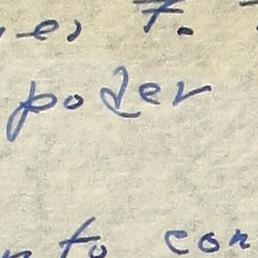 e, 7.
poder
nto con